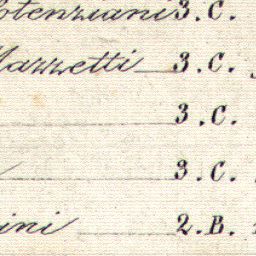 otenziani 3.C.
Mazzetti 3.C.
3.C.
3.C.
ini 2.B.